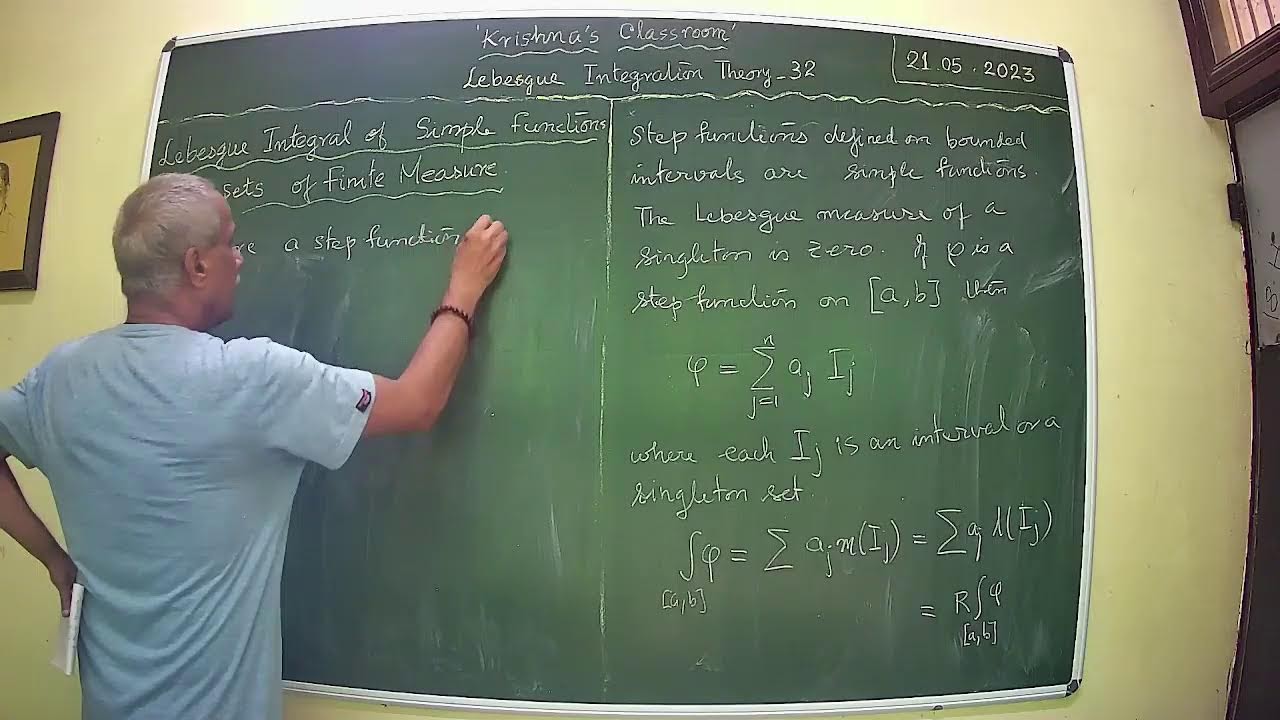 'Krishna's Classroom'
Lebesgue Integration Theory_32
21.05.2023
Lebesgue Integral of Simple functions
sets of Finite Measure.
a step function
Step functions defined on bounded
intervals are simple functions.
The Lebesgue measure of a
singleton is zero. If φ is a
step function on [a,b] then
φ = ∑_{j=1}^{n} a_j I_j
where each I_j is an interval or a
singleton set.
∫_{[a,b]} φ = ∑ a_j m(I_j) = ∑ a_j l(I_j)
= R∫_{[a,b]} φ